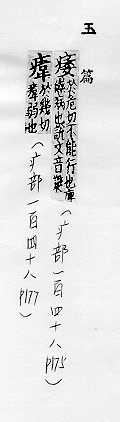 玉篇
痿
於危切不能行也痺
病也說文音蕤
（疒部一百四十八
P175）
㾯
於幾切
㾯弱也
（疒部一百四十八
P177）